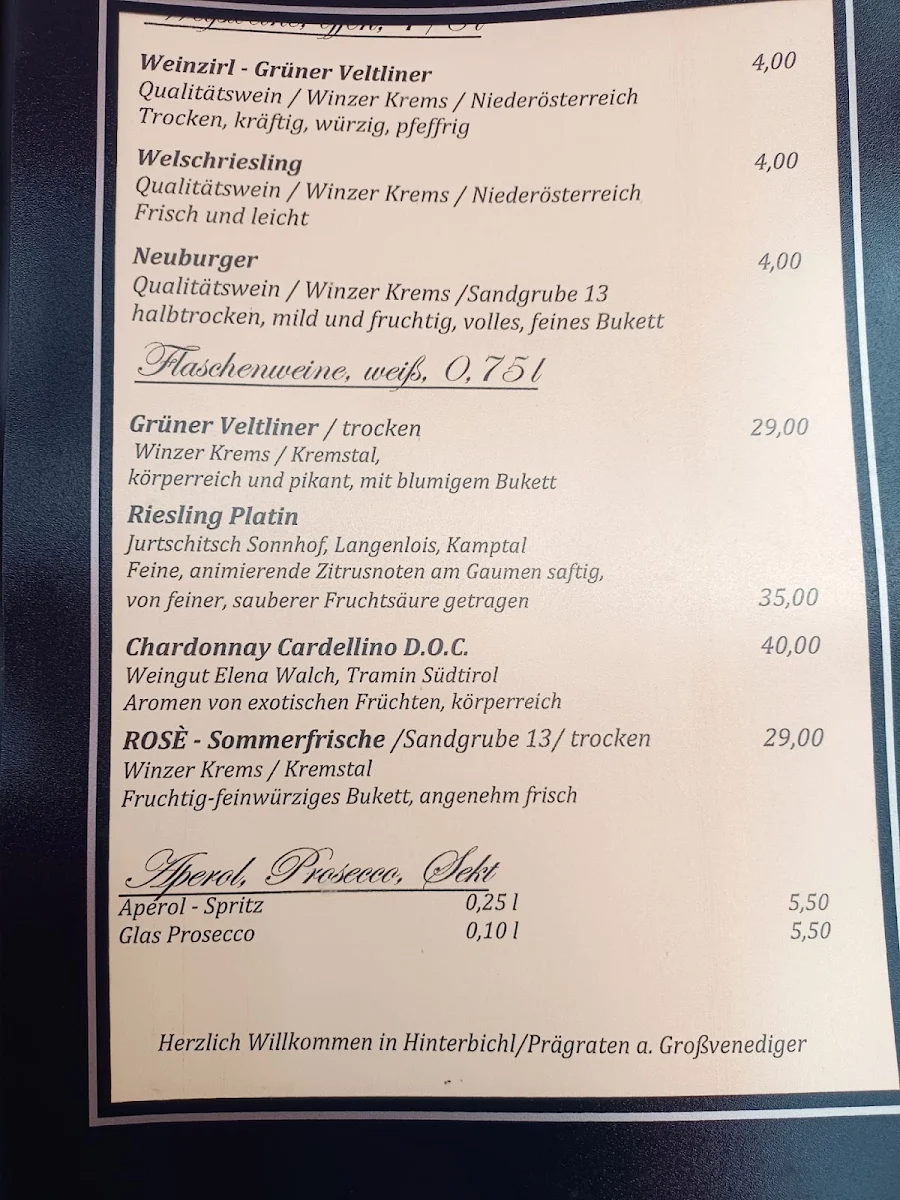 Weinzirl - Grüner Veltliner 4,00
Qualitätswein / Winzer Krems / Niederösterreich
Trocken, kräftig, würzig, pfeffrig
Welschriesling 4,00
Qualitätswein / Winzer Krems / Niederösterreich
Frisch und leicht
Neuburger 4,00
Qualitätswein / Winzer Krems /Sandgrube 13
halbtrocken, mild und fruchtig, volles, feines Bukett
Flaschenweine, weiß, 0,75 l
Grüner Veltliner / trocken 29,00
Winzer Krems / Kremstal,
körperreich und pikant, mit blumigem Bukett
Riesling Platin
Jurtschitsch Sonnhof, Langenlois, Kamptal
Feine, animierende Zitrusnoten am Gaumen saftig,
von feiner, sauberer Fruchtsäure getragen 35,00
Chardonnay Cardellino D.O.C. 40,00
Weingut Elena Walch, Tramin Südtirol
Aromen von exotischen Früchten, körperreich
ROSÈ - Sommerfrische /Sandgrube 13/ trocken 29,00
Winzer Krems / Kremstal
Fruchtig-feinwürziges Bukett, angenehm frisch
Aperol, Prosecco, Sekt
Aperol - Spritz 0,25 l 5,50
Glas Prosecco 0,10 l 5,50
Herzlich Willkommen in Hinterbichl/Prägraten a. Großvenediger